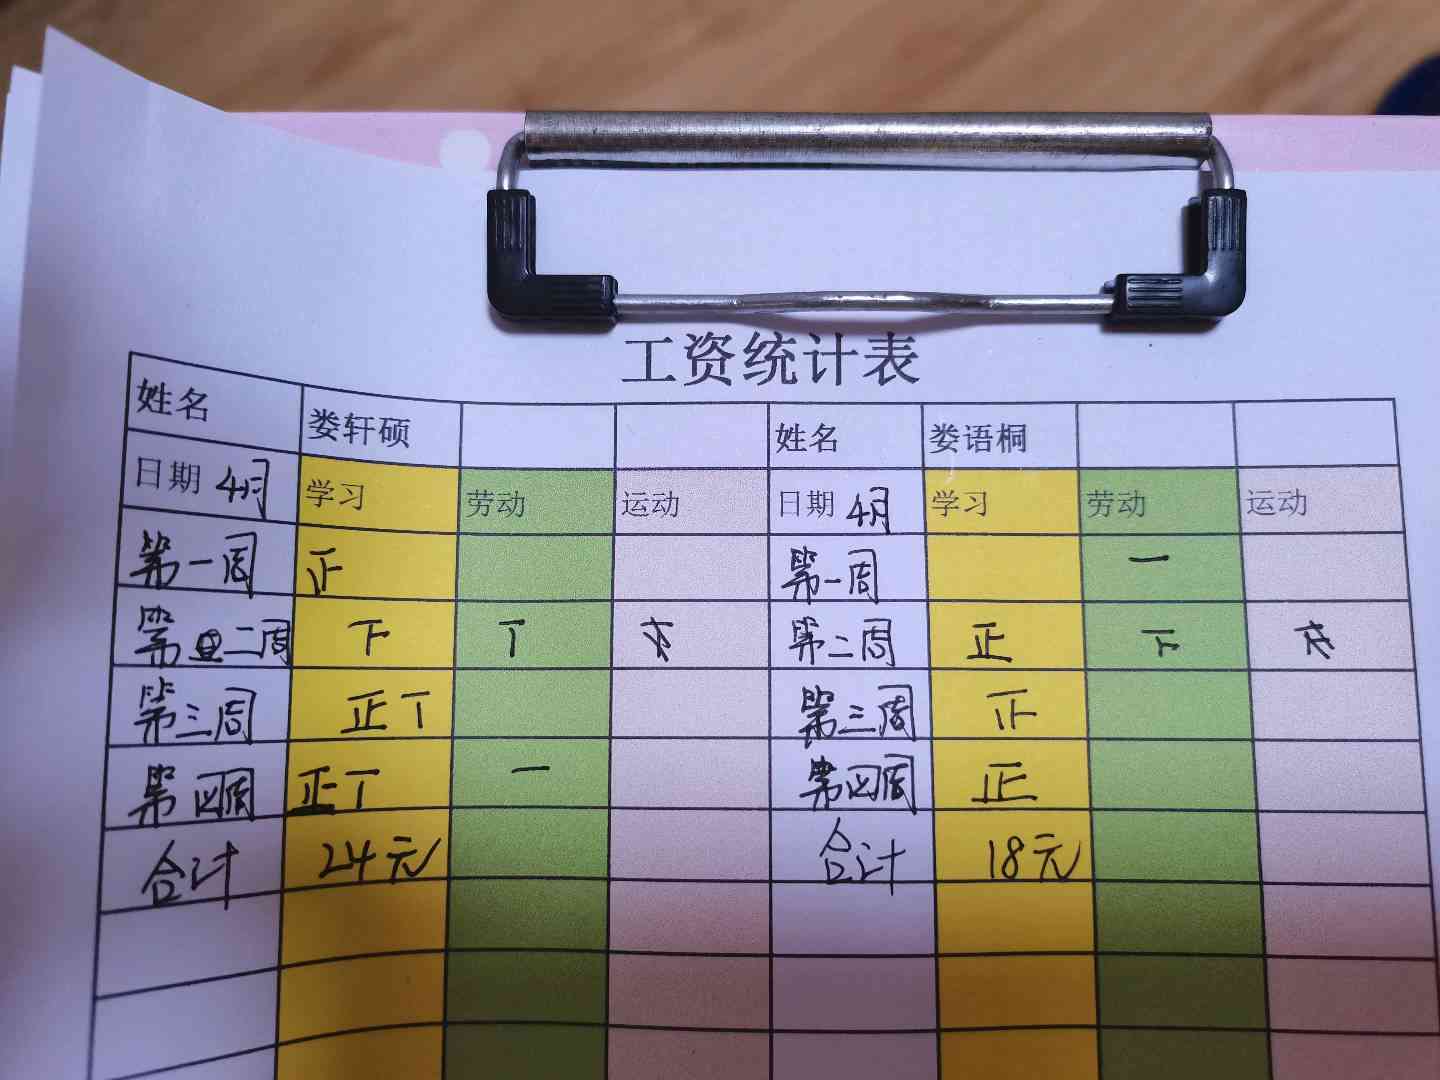 工资统计表
姓名 娄轩硕 姓名 娄语桐
日期 4月 学习 劳动 运动 日期 4月 学习 劳动 运动
第一周 正 第一周 一
第二周 下 丅 第二周 正 下
第三周 正丅 第三周 正
第四周 正丅 一 第四周 正
合计 24元 合计 18元